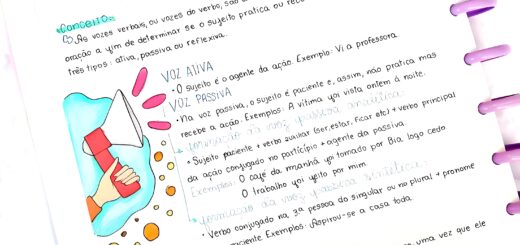 Conceito:
As vozes verbais, ou vozes do verbo, são
oração a fim de determinar se o sujeito pratica ou rece
três tipos: ativa, passiva ou reflexiva.
VOZ ATIVA
• O sujeito é o agente da ação. Exemplo: Vi a professora.
VOZ PASSIVA
• Na voz passiva, o sujeito é paciente e, assim, não pratica mas
recebe a ação. Exemplos: A vítima foi vista ontem à noite.
formação da voz passiva analítica:
• Sujeito paciente + verbo auxiliar (ser, estar, ficar etc) + verbo principal
da ação conjugado no particípio + agente da passiva.
Exemplos: O café da manhã foi tomado por Bia logo cedo
O trabalho foi feito por mim
formação da voz passiva sintética:
• Verbo conjugado na 3ª pessoa do singular ou no plural + pronome
ciente. Exemplos: Aspirou-se a casa toda.
uma vez que ele